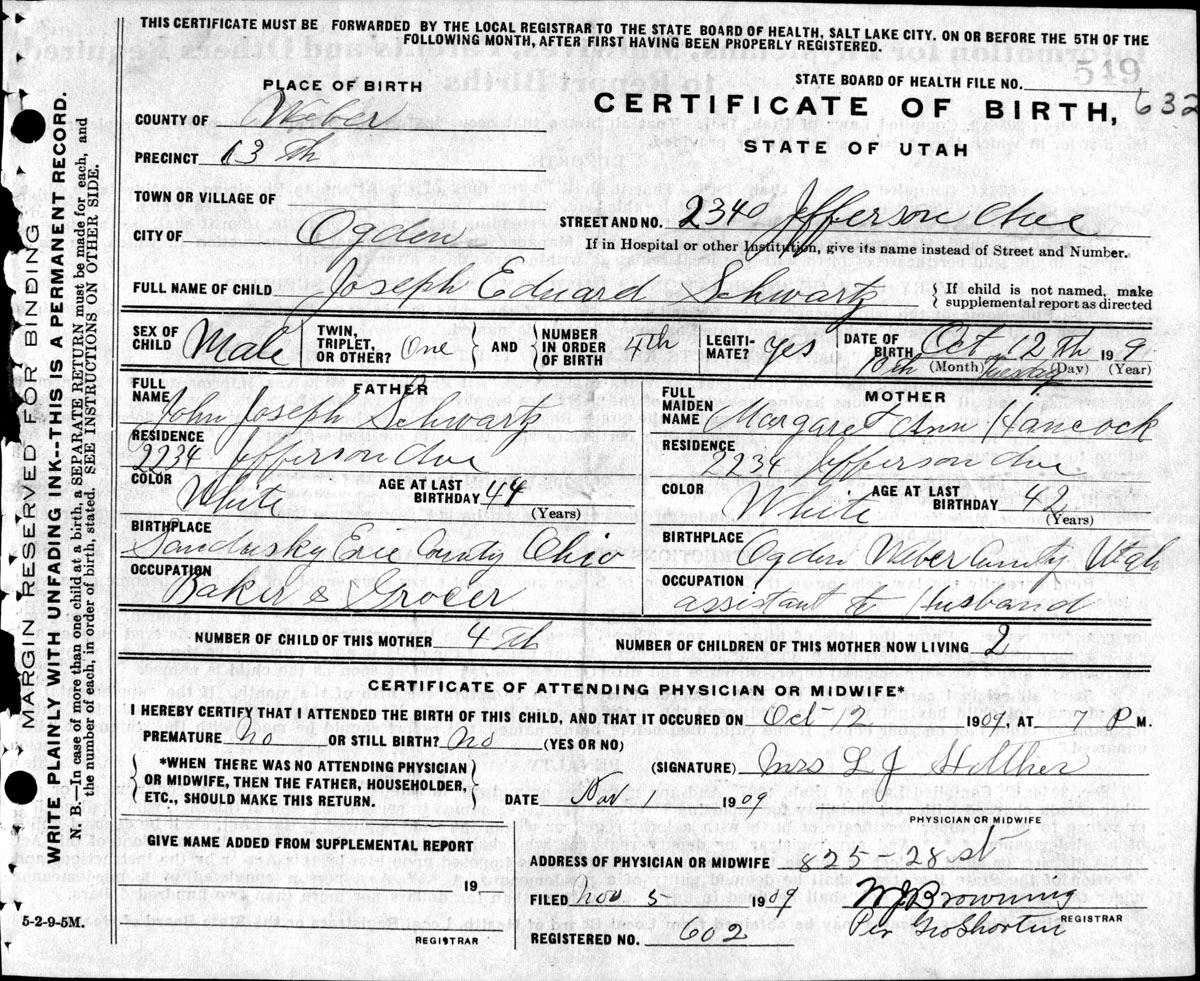 THIS CERTIFICATE MUST BE FORWARDED BY THE LOCAL REGISTRAR TO THE STATE BOARD OF HEALTH, SALT LAKE CITY, ON OR BEFORE THE 5TH OF THE
FOLLOWING MONTH, AFTER FIRST HAVING BEEN PROPERLY REGISTERED.
519
STATE BOARD OF HEALTH FILE NO.
PLACE OF BIRTH
CERTIFICATE OF BIRTH, 632
COUNTY OF Weber
STATE OF UTAH
PRECINCT 13th
TOWN OR VILLAGE OF
STREET AND NO. 2340 Jefferson Ave
CITY OF Ogden
If in Hospital or other Institution, give its name instead of Street and Number.
FULL NAME OF CHILD Joseph Eduard Schwartz
{If child is not named, make
supplemental report as directed
SEX OF CHILD Male TWIN, TRIPLET, OR OTHER? One { AND } NUMBER IN ORDER OF BIRTH 4th LEGITIMATE? Yes DATE OF BIRTH Oct 12th 1909
10th (Month) Tuesday (Day) (Year)
FATHER
FULL NAME John Joseph Schwartz
RESIDENCE 2234 Jefferson Ave
COLOR White AGE AT LAST BIRTHDAY 44
(Years)
BIRTHPLACE Sandusky Erie County Ohio
OCCUPATION Baker & Grocer
MOTHER
FULL MAIDEN NAME Margaret Ann Hancock
RESIDENCE 2234 Jefferson Ave.
COLOR White AGE AT LAST BIRTHDAY 42
(Years)
BIRTHPLACE Ogden Weber County Utah
OCCUPATION assistant to Husband
NUMBER OF CHILD OF THIS MOTHER 4th NUMBER OF CHILDREN OF THIS MOTHER NOW LIVING 2
CERTIFICATE OF ATTENDING PHYSICIAN OR MIDWIFE*
I HEREBY CERTIFY THAT I ATTENDED THE BIRTH OF THIS CHILD, AND THAT IT OCCURED ON Oct 12 1909, AT 7 P M.
PREMATURE No OR STILL BIRTH? No (YES OR NO)
{*WHEN THERE WAS NO ATTENDING PHYSICIAN
OR MIDWIFE, THEN THE FATHER, HOUSEHOLDER,
ETC., SHOULD MAKE THIS RETURN.}
(SIGNATURE) Mrs L J
DATE Nov 1 1909
PHYSICIAN OR MIDWIFE
GIVE NAME ADDED FROM SUPPLEMENTAL REPORT
19
REGISTRAR
ADDRESS OF PHYSICIAN OR MIDWIFE 825 28 st
FILED Nov 5 1909 W J Browning
REGISTRAR
Per Geo Shorten
REGISTERED NO. 602
5-2-9-5M.
MARGIN RESERVED FOR BINDING
WRITE PLAINLY WITH UNFADING INK--THIS IS A PERMANENT RECORD.
N. B.—In case of more than one child at a birth, a SEPARATE RETURN must be made for each, and
the number of each, in order of birth, stated. SEE INSTRUCTIONS ON OTHER SIDE.